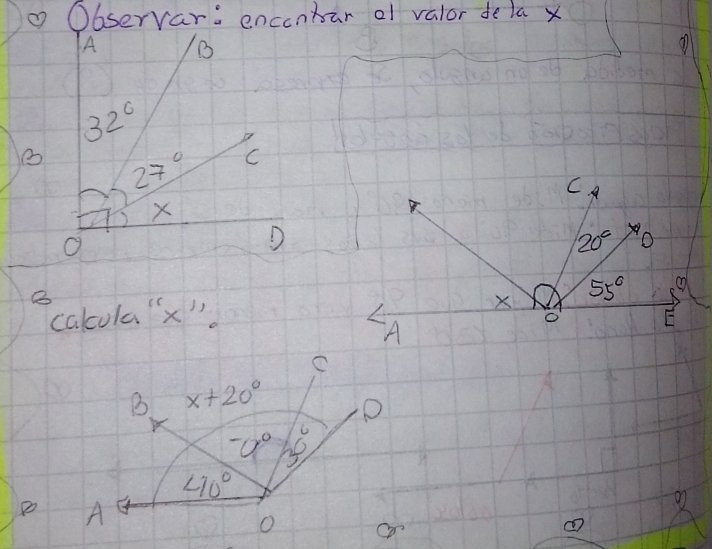 Observar: encontrar el valor de la x
A
B
32°
27°
C
x
O
D
C
20°
D
x
55°
A
O
E
calcula "x".
C
B
x+20°
D
A
O